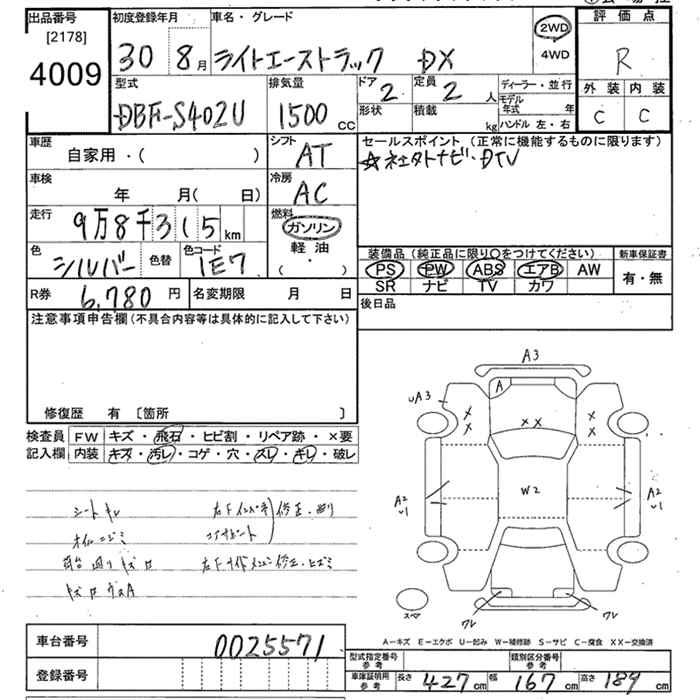 出品番号
[2178]
4009
初度登録年月
30 8月
車名・グレード
ライトエーストラック DX
2WD
4WD
評価点
R
外装 内装
C C
型式
DBF-S402U
排気量
1500cc
ドア
2
定員
2人
形状
積載
kg
ディーラー・並行
モデル年式 年
ハンドル 左・右
車歴
自家用・( )
シフト
AT
セールスポイント (正常に機能するものに限ります)
☆ネエタトナビ・DTV
車検
年 月(日)
冷房
AC
走行
9万8千315km
燃料
ガソリン
軽油
( ・ )
色
シルバー
色替
色コード
1E7
装備品 (純正品に限り〇をつけてください)
PS PW ABS エアB AW
SR ナビ TV カワ
新車保証書
有・無
R券 6,780円
名変期限 月 日
後日品
注意事項申告欄 (不具合内容等は具体的に記入して下さい)
修復歴 有 〔箇所 〕
検査員
記入欄
FW キズ・飛石・ヒビ割・リペア跡・×要
内装 キズ・汚レ・コゲ・穴・スレ・キレ・破レ
シートキレ
オイルニジミ
A3
A
uA3
W2
A2
u1
A2
u1
スペア
ワレ
ワレ
A－キズ E－エクボ U－凹み W－補修跡 S－サビ C－腐食 XX－交換済
車台番号 0025571
登録番号
型式指定番号
参考
類別区分番号
参考
車庫証明用
参考
長さ 427cm 幅 167cm 高さ 189cm